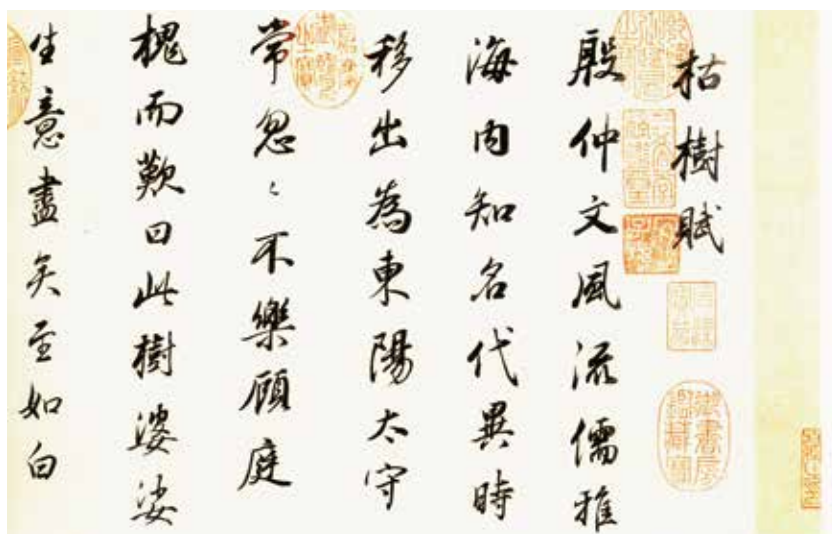 枯樹賦
殷仲文風流儒雅
海內知名代異時
移出為東陽太守
常忽〻不樂顧庭
槐而歎曰此樹婆娑
生意盡矣至如白
御書房鑑藏寶